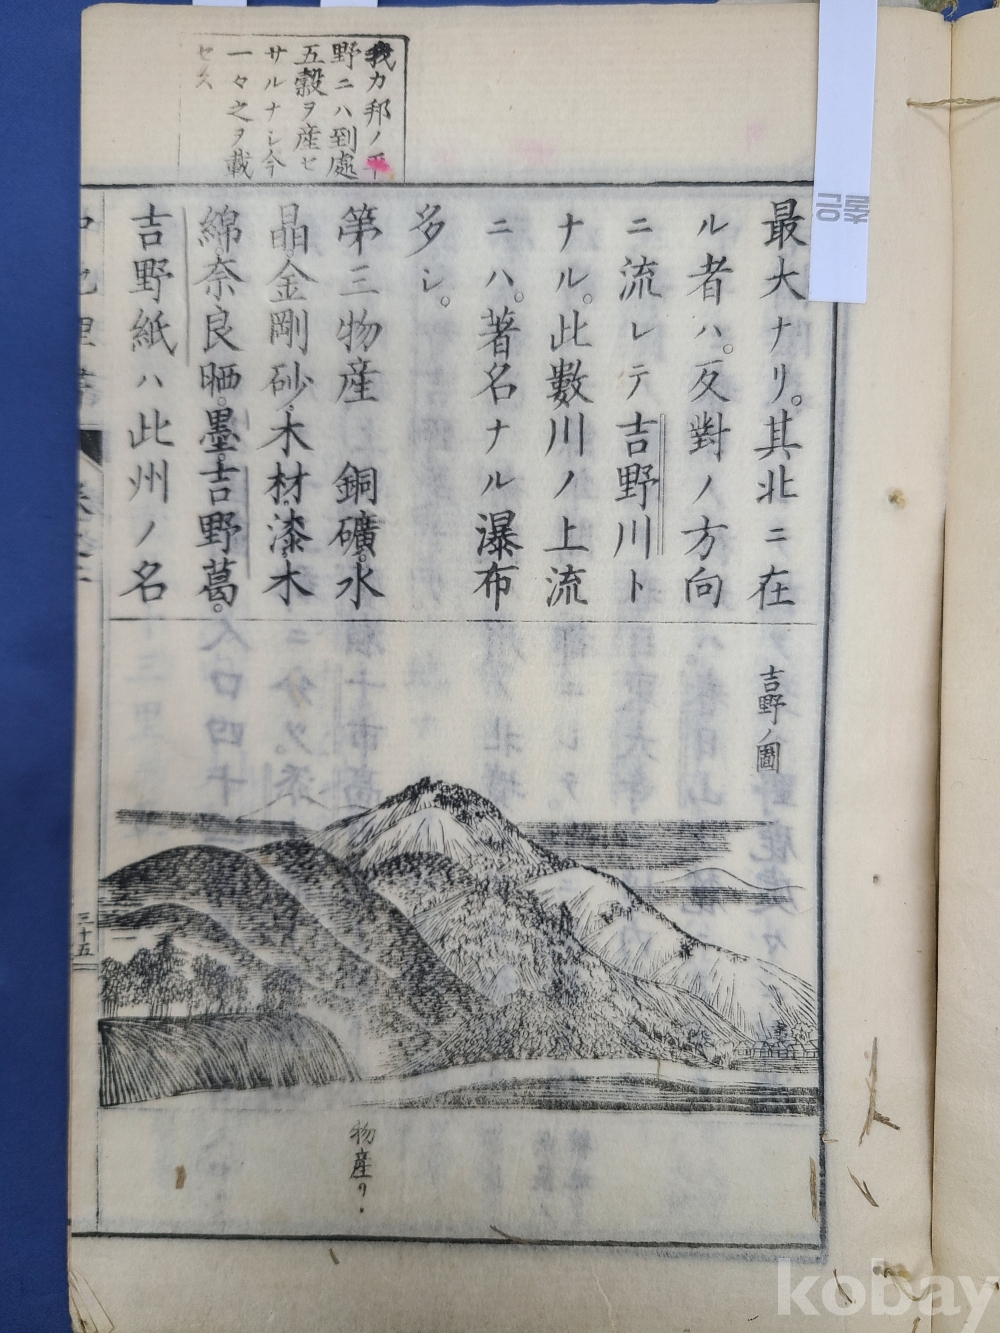 我カ邦ノ平
野ニハ到處
五穀ヲ産セ
サルナシ今
一々之ヲ載
セス
最大ナリ。其北ニ在
ル者ハ。反對ノ方向
ニ流レテ吉野川ト
ナル。此數川ノ上流
ニハ。著名ナル瀑布
多シ。
第三物産 銅礦。水
晶。金剛砂、木材、漆、木
綿。奈良晒。墨。吉野葛。
吉野紙ハ此州ノ名
吉野ノ圖
物産ノ
三十五
출
은
kobay